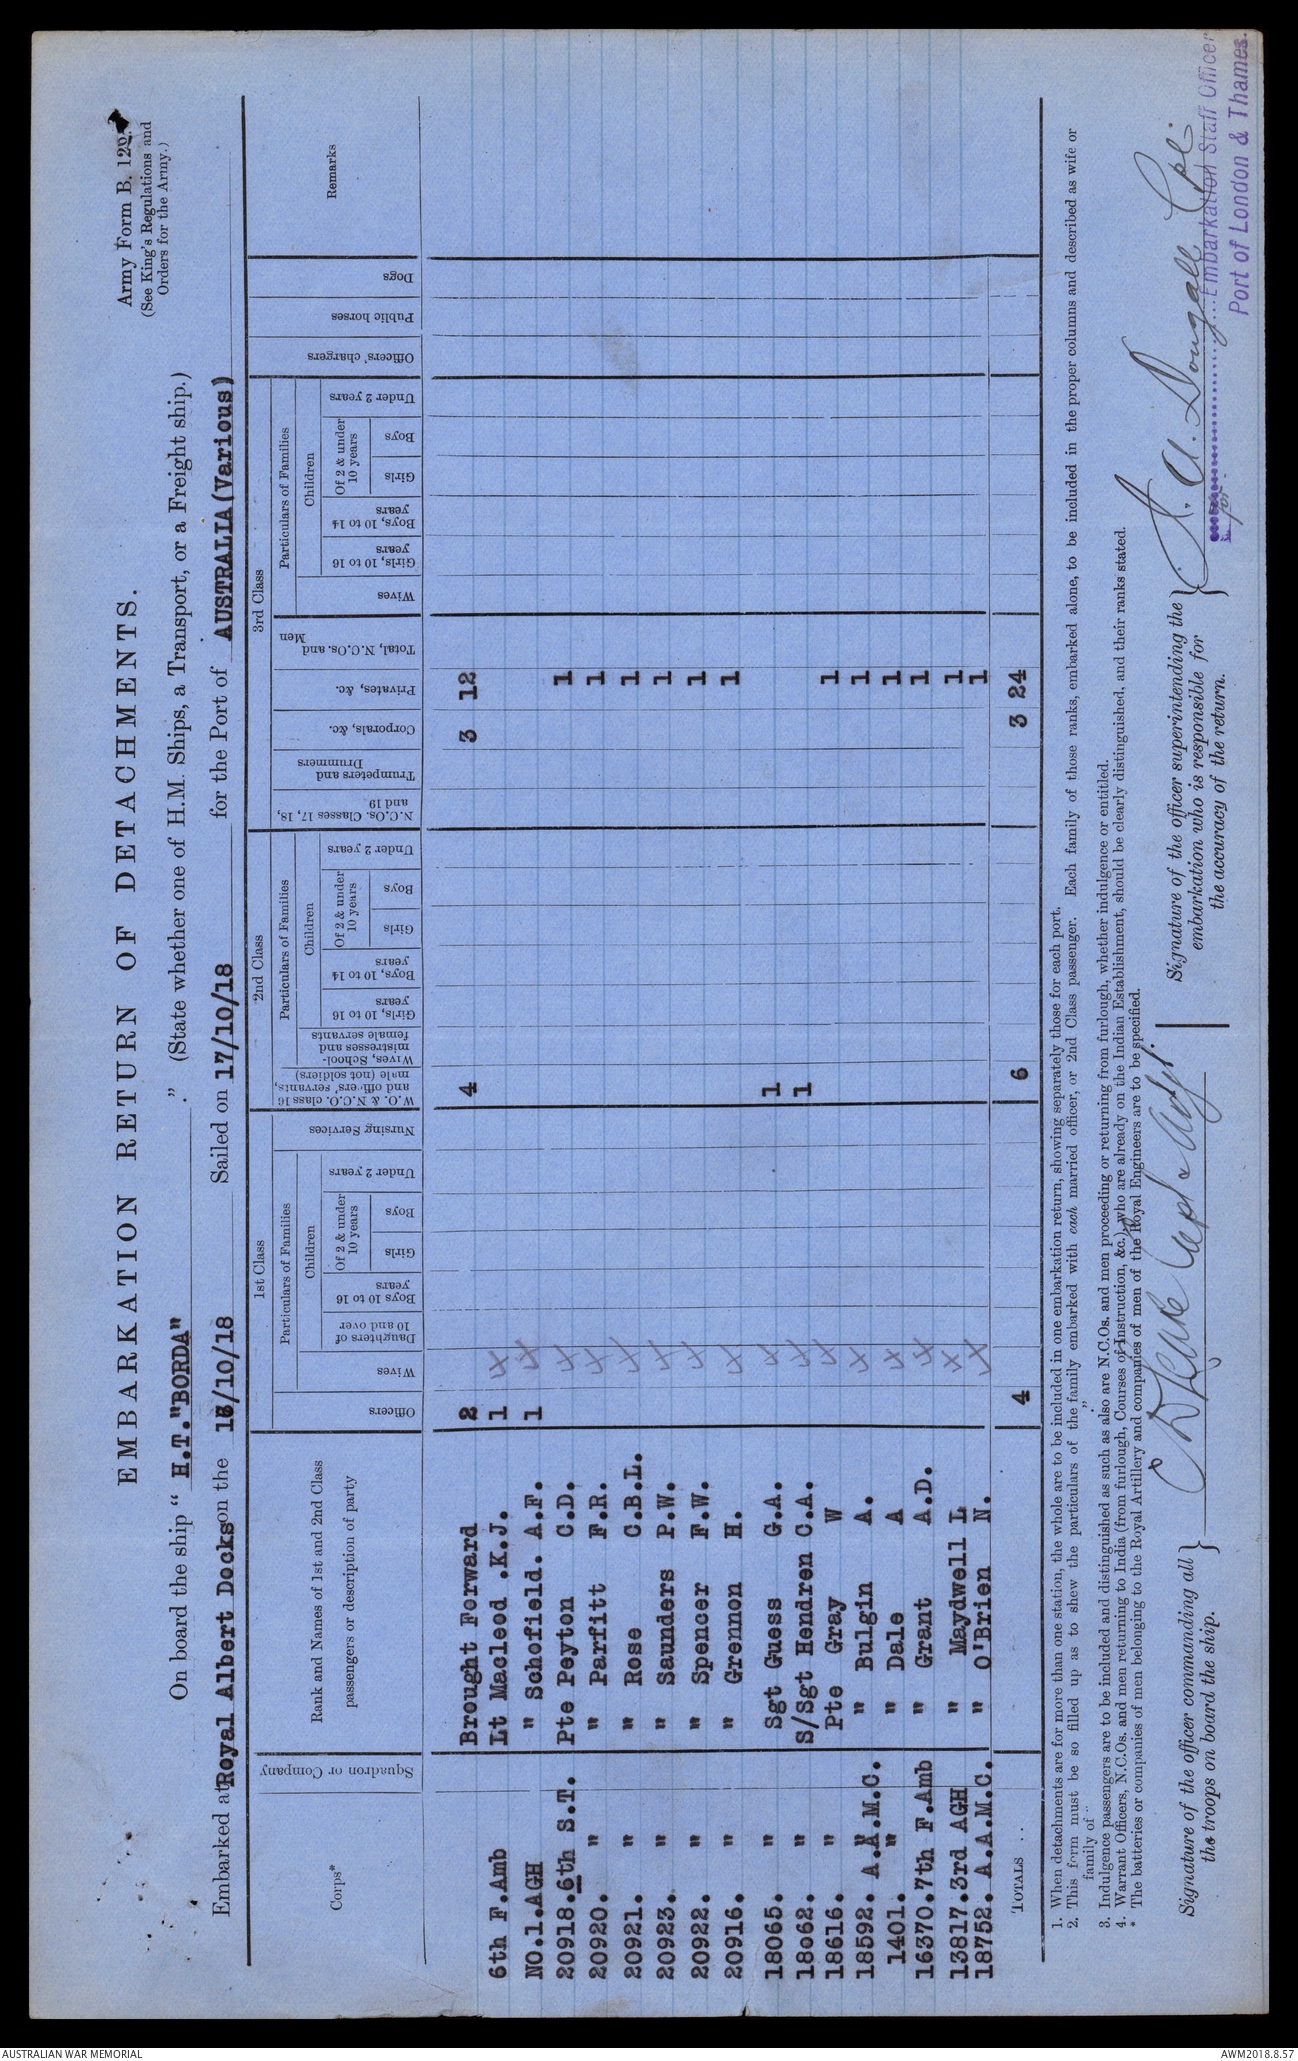 Army Form B. 129.
(See King's Regulations and
Orders for the Army.)
EMBARKATION RETURN OF DETACHMENTS.
On board the ship " H.T."BORDA" ." (State whether one of H.M. Ships, a Transport, or a Freight ship.)
Embarked at Royal Albert Docks on the /10/18 Sailed on 17/10/18 for the Port of AUSTRALIA(Various)
Corps*
Squadron or Company
Rank and Names of 1st and 2nd Class
passengers or description of party
1st Class
Officers
Particulars of Families
Wives
Daughters of
10 and over
Children
Boys 10 to 16
years
Of 2 & under
10 years
Girls
Boys
Under 2 years
Nursing Services
2nd Class
W.O. & N.C.O. class 16
and officers' servants,
male (not soldiers)
Particulars of Families
Wives, School-
mistresses and
female servants
Children
Girls, 10 to 16
years
Boys, 10 to 14
years
Of 2 & under
10 years
Girls
Boys
Under 2 years
3rd Class
N.C.Os. Classes 17, 18,
and 19
Trumpeters and
Drummers
Corporals, &c.
Privates, &c.
Total, N.C.Os. and
Men
Particulars of Families
Wives
Children
Girls, 10 to 16
years
Boys, 10 to 14
years
Of 2 & under
10 years
Girls
Boys
Under 2 years
Officers' chargers
Public horses
Dogs
Remarks
Brought Forward 2 4 3 12
6th F.Amb Lt Macleod .K.J. 1
NO.1.AGH " Schofield. A.F. 1
20918.6th S.T. Pte Peyton C.D. 1
20920. " " Parfitt F.R. 1
20921. " " Rose C.B.L. 1
20923. " " Saunders P.W. 1
20922. " " Spencer F.W. 1
20916. " " Grennon H. 1
18065. " Sgt Guess G.A. 1
18062. " S/Sgt Hendren C.A. 1
18616. " Pte Gray W 1
18592. A.A.M.C. " Bulgin A. 1
1401. " " Dale A 1
16370.7th F.Amb " Grant A.D. 1
13817.3rd AGH " Maydwell L 1
18752. A.A.M.C. " O'Brien N. 1
TOTALS .. 4 6 3 24
1. When detachments are for more than one station, the whole are to be included in one embarkation return, showing separately those for each port.
2. This form must be so filled up as to shew the particulars of the family embarked with each married officer, or 2nd Class passenger. Each family of those ranks, embarked alone, to be included in the proper columns and described as wife or
family of " "
3. Indulgence passengers are to be included and distinguished as such as also are N.C.Os. and men proceeding or returning from furlough, whether indulgence or entitled.
4. Warrant Officers, N.C.Os. and men returning to India (from furlough, Courses of Instruction, &c.), who are already on the Indian Establishment, should be clearly distinguished, and their ranks stated.
* The batteries or companies of men belonging to the Royal Artillery and companies of men of the Royal Engineers are to be specified.
Signature of the officer commanding all
the troops on board the ship.
Capt & Adjt.
Signature of the officer superintending the
embarkation who is responsible for
the accuracy of the return.
Dougall Cpl.
for
Embarkation Staff Officer
Port of London & Thames.
AUSTRALIAN WAR MEMORIAL
AWM2018.8.57